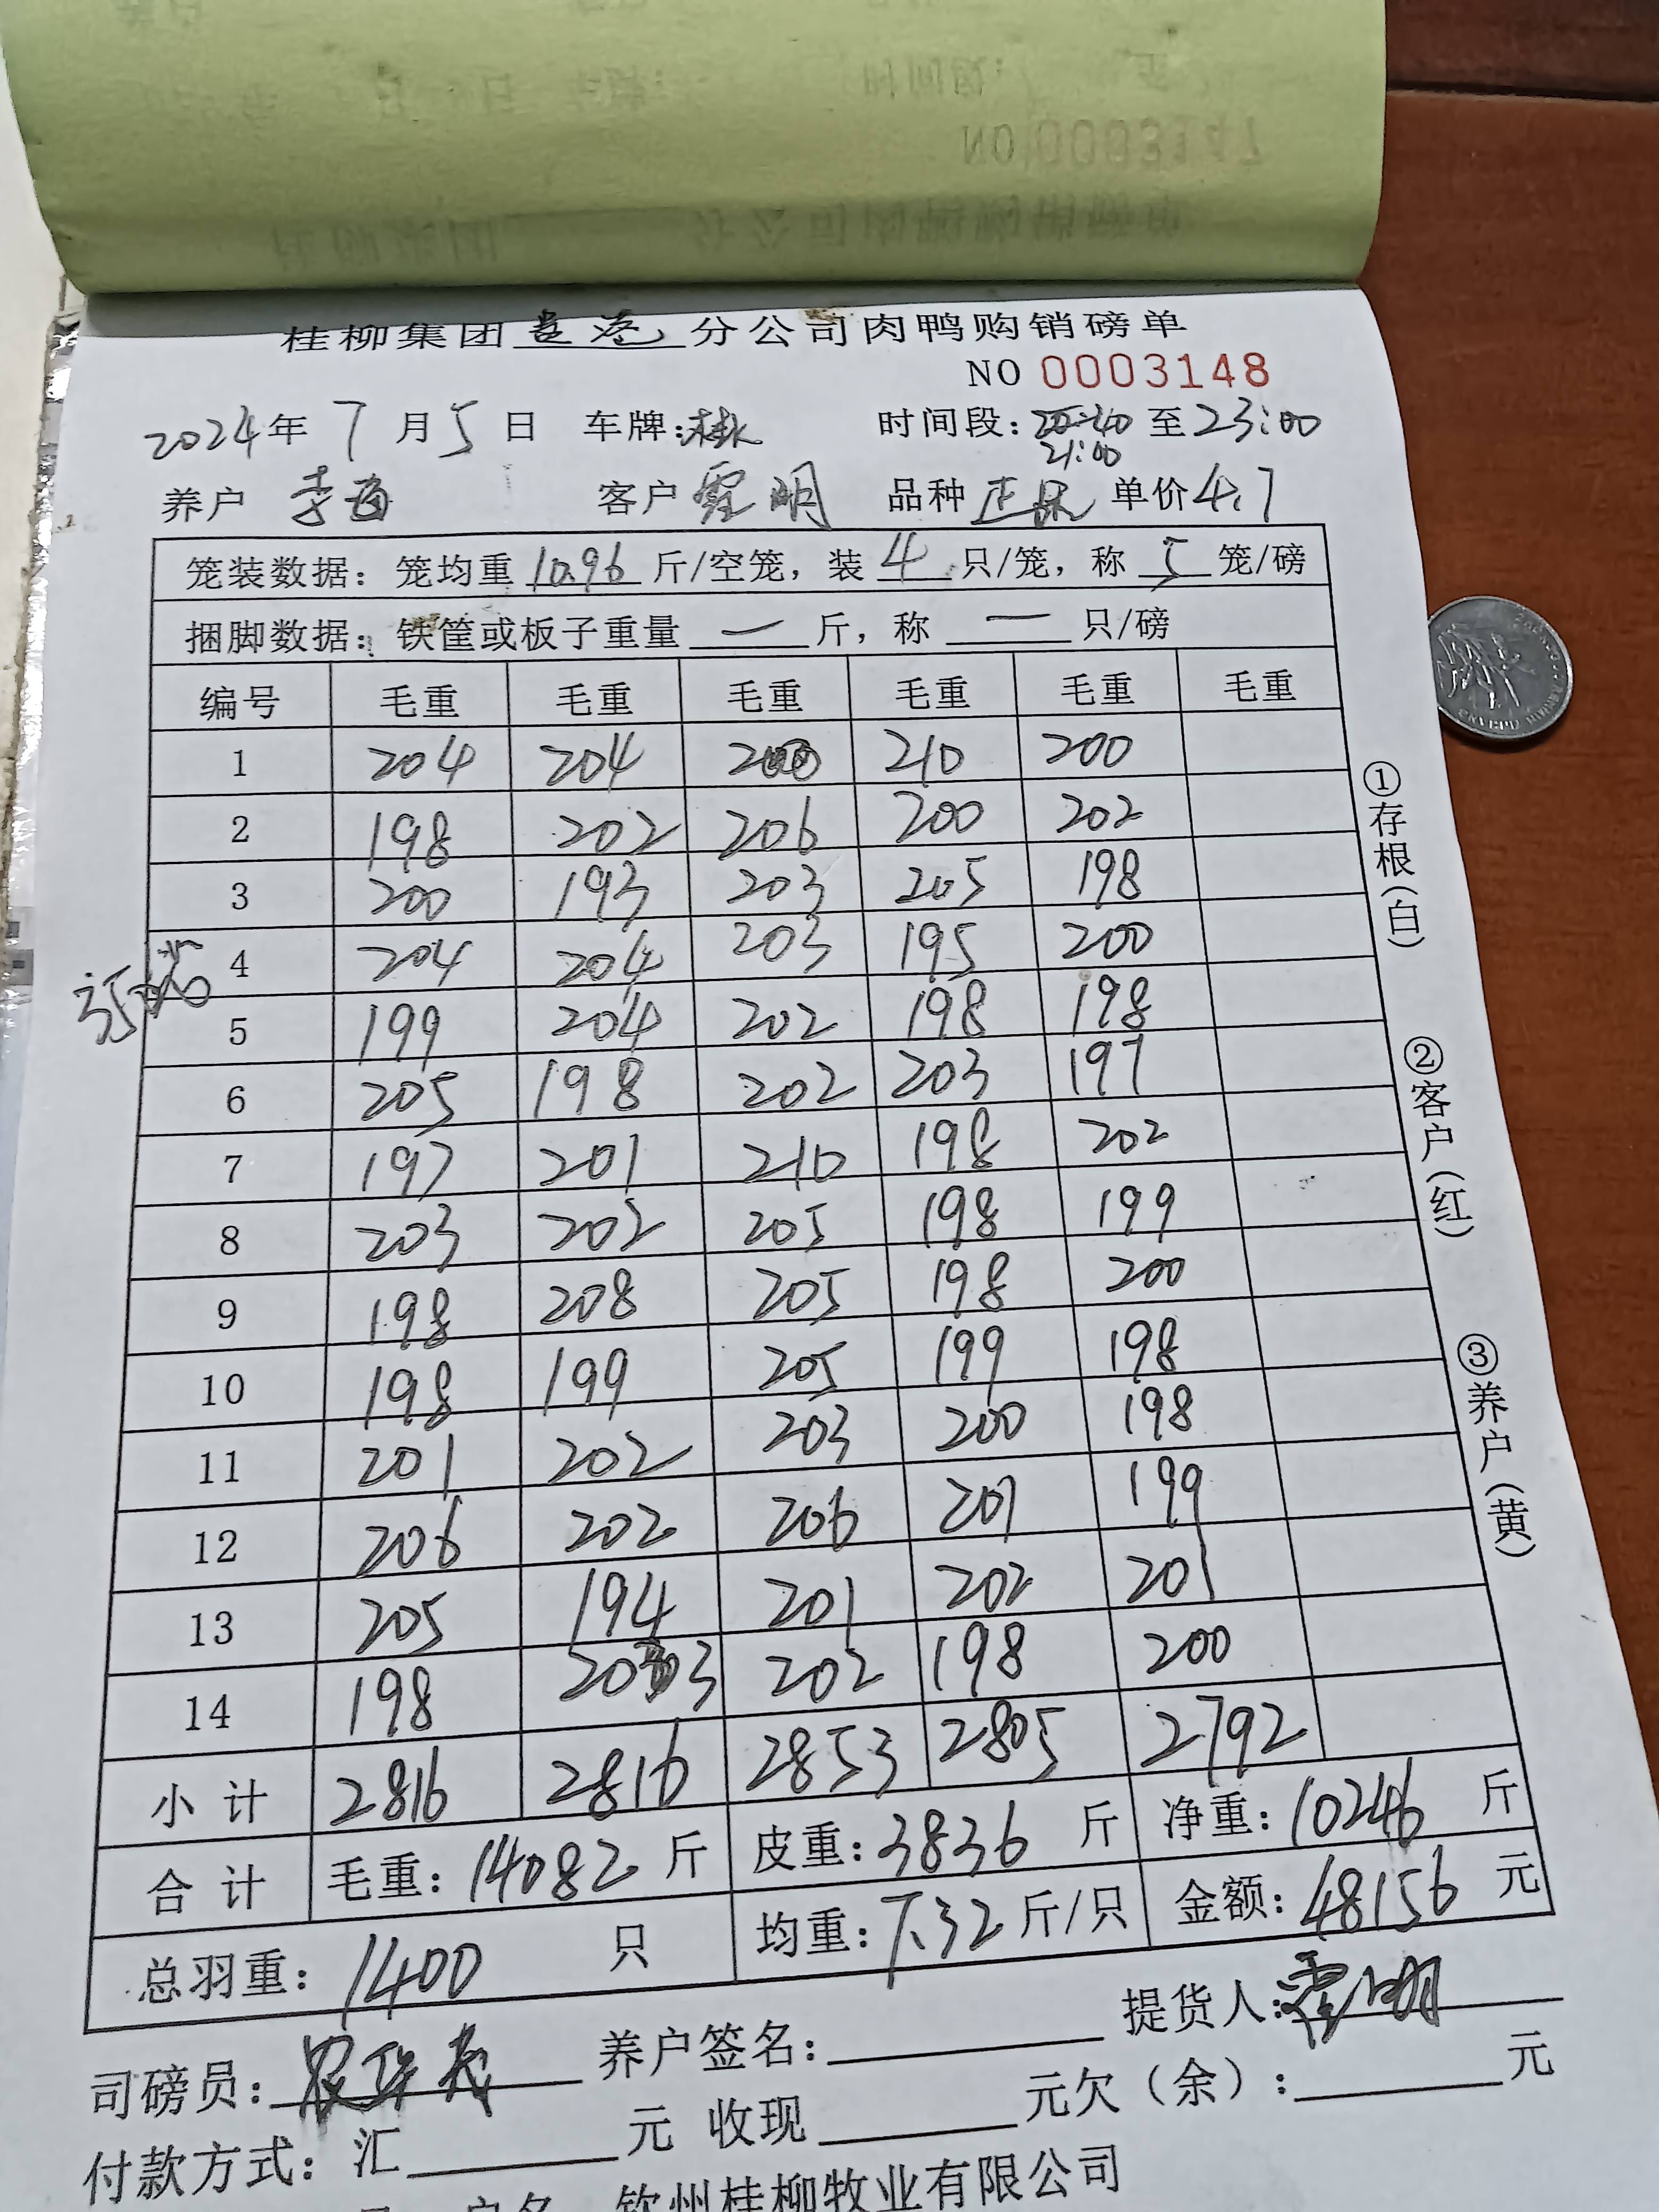 桂柳集团贵港分公司肉鸭购销磅单
NO 0003148
2024年 7 月 5 日 车牌: 时间段: 21:00 至 23:00
养户 李 客户 霍明 品种 正品 单价 4.7
笼装数据: 笼均重 10.96 斤/空笼, 装 4 只/笼, 称 5 笼/磅
捆脚数据: 铁筐或板子重量 — 斤, 称 — 只/磅
编号 毛重 毛重 毛重 毛重 毛重 毛重
1 204 204 200 210 200
2 198 202 206 200 202
3 200 193 203 205 198
4 204 204 203 195 200
5 199 204 202 198 198
6 205 198 202 203 197
7 197 201 210 198 202
8 203 202 205 198 199
9 198 208 205 198 200
10 198 199 205 199 198
11 201 202 203 200 198
12 206 202 206 201 199
13 205 194 201 202 201
14 198 203 202 198 200
小计 2816 2816 2853 2805 2792
合计 毛重: 14082 斤 皮重: 3836 斤 净重: 10246 斤
总羽重: 1400 只 均重: 7.32 斤/只 金额: 48156 元
司磅员: 养户签名: 提货人: 霍明
付款方式: 汇 元 收现 元欠(余): 元
户名 钦州桂柳牧业有限公司
①存根(白)
②客户(红)
③养户(黄)